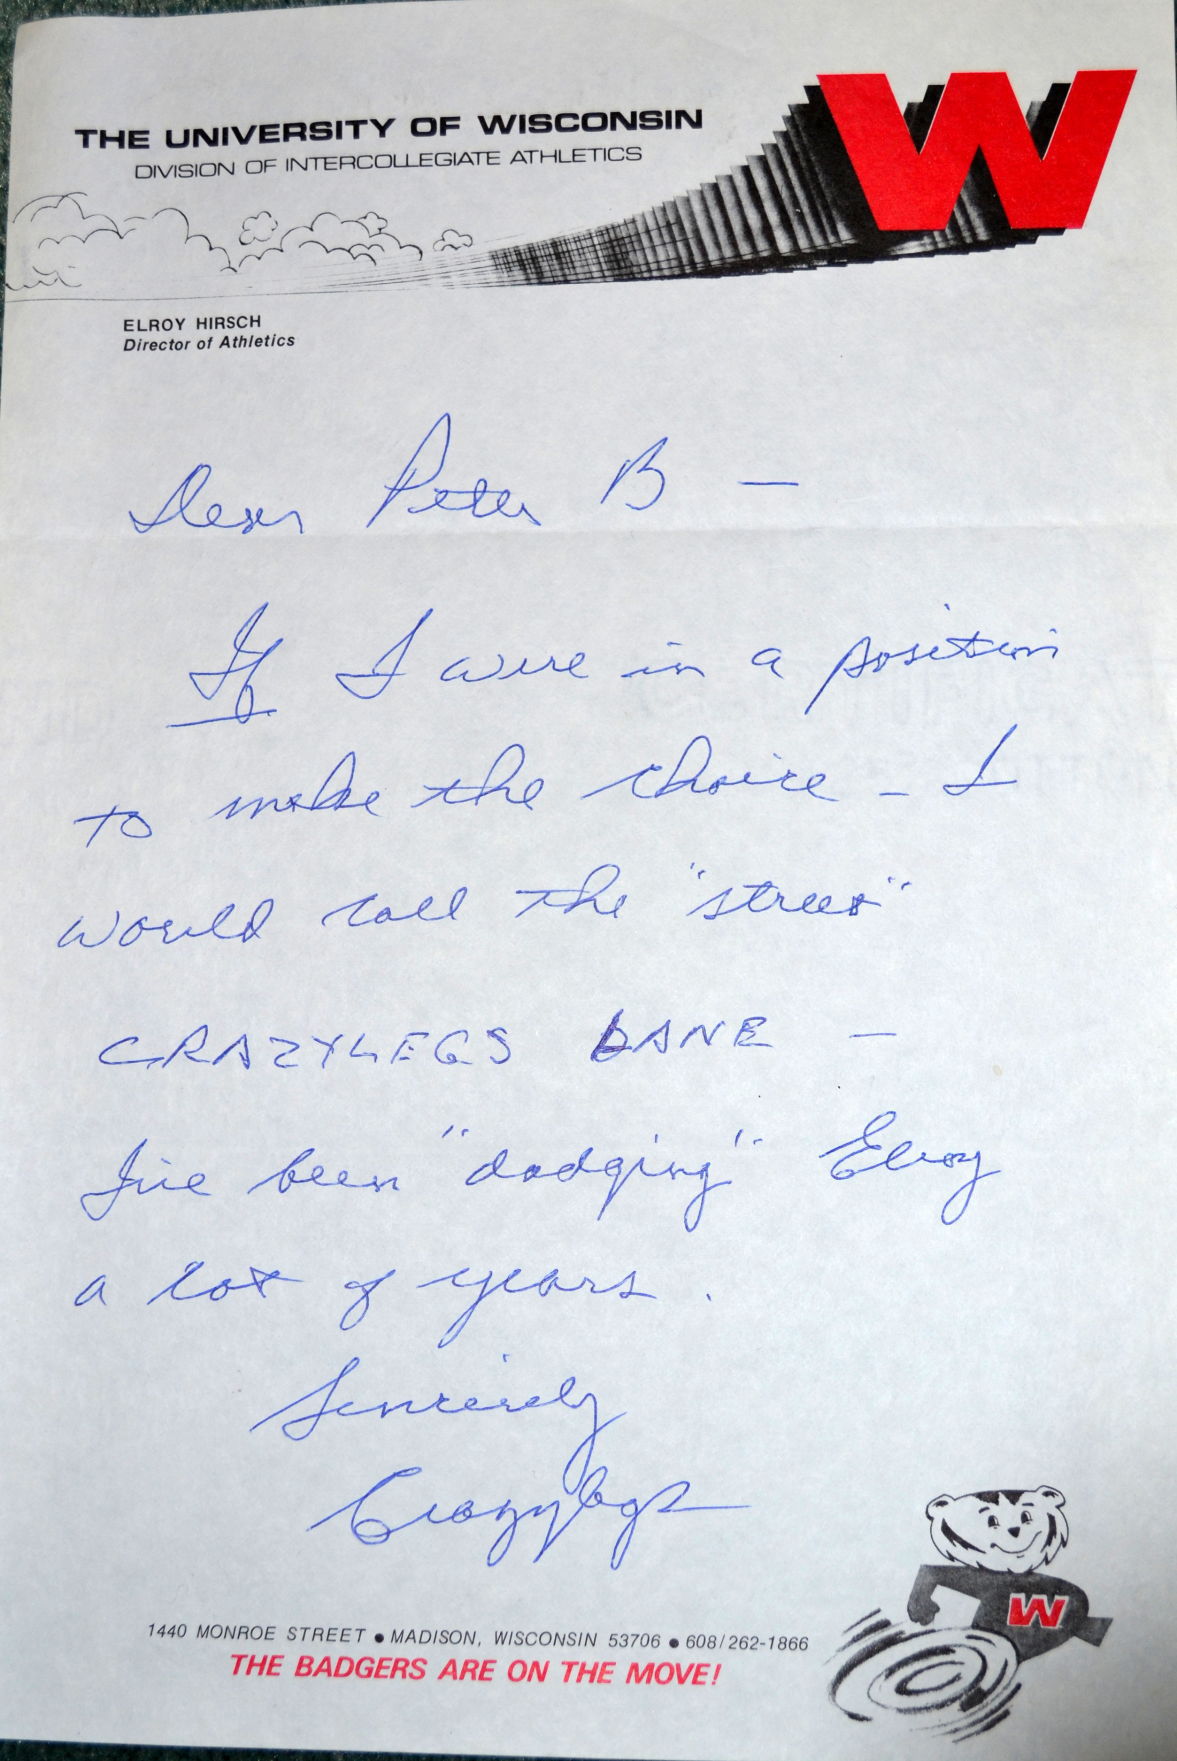 THE UNIVERSITY OF WISCONSIN
DIVISION OF INTERCOLLEGIATE ATHLETICS
W
ELROY HIRSCH
Director of Athletics
Dear Peter B —
If I were in a position
to make the choice - I
would call the "street"
CRAZYLEGS LANE —
I've been "dodging" Elroy
a lot of years.
Sincerely
Crazylegs
W
1440 MONROE STREET ● MADISON, WISCONSIN 53706 ● 608/262-1866
THE BADGERS ARE ON THE MOVE!